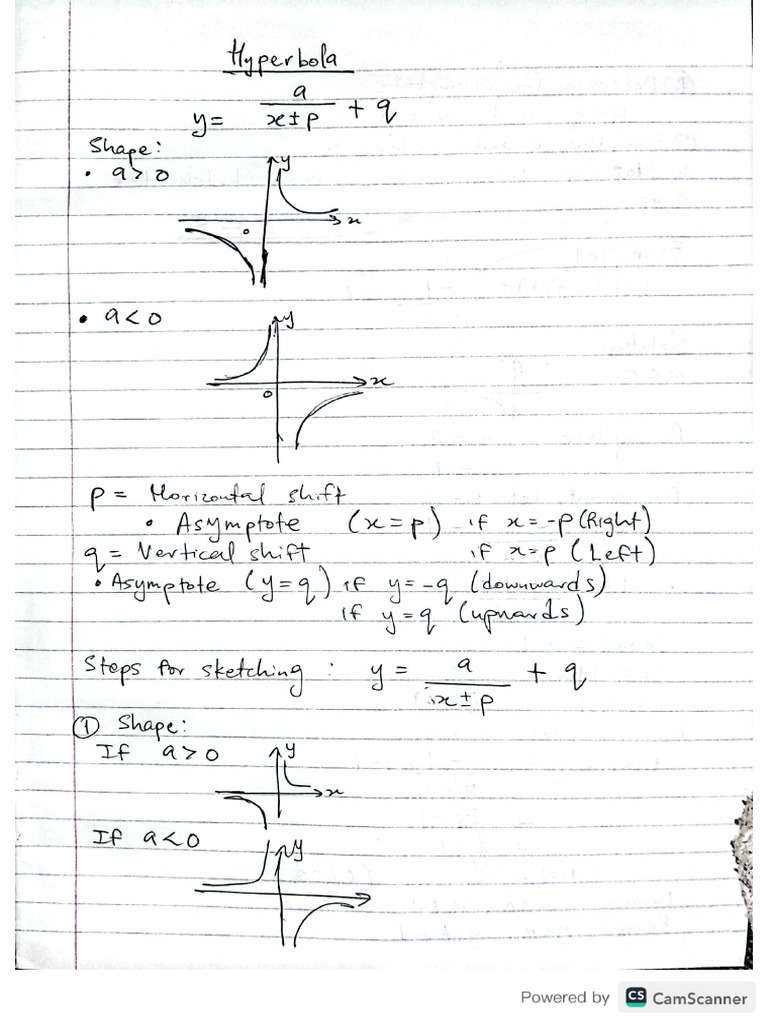 Hyperbola
y = a/(x ± p) + q
Shape:
• a > 0
y
x
o
• a < 0
y
x
o
p = Horizontal shift
• Asymptote (x = p) if x = -p (Right)
q = Vertical shift if x = p (Left)
• Asymptote (y = q) if y = -q (downwards)
if y = q (upwards)
Steps for sketching : y = a/(x ± p) + q
① Shape:
If a > 0
y
x
If a < 0
y
Powered by CS CamScanner